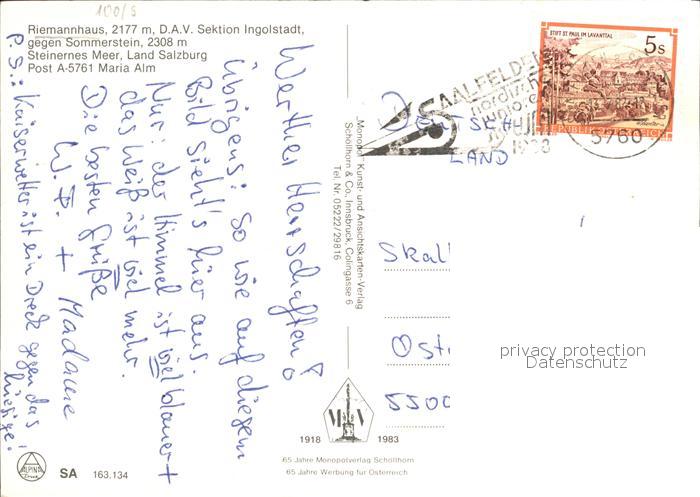 100/5
Riemannhaus, 2177 m, D.A.V. Sektion Ingolstadt,
gegen Sommerstein, 2308 m
Steinernes Meer, Land Salzburg
Post A-5761 Maria Alm
Werther Herrschaften!
Übrigens: so wie auf diesem
Bild sieht's hier aus.
Nur: der Himmel ist viel blauer +
das Weiß ist viel mehr.
Die besten Grüße
W. F. + Madame
P.S.: Kaiserwetter ist ein Dreck gegen das
hiesige.
Monopol Kunst- und Ansichtskarten-Verlag
Schöllhorn & Co, Innsbruck, Colingasse 6
Tel. Nr. 05222/29816
STIFT ST. PAUL IM LAVANTTAL
5 S
REPUBLIK ÖSTERREICH
SAALFELDEN
nordische
junioren
1988
5760
Deutsch
LAND
Skal
Osti
5500
privacy protection
Datenschutz
M V
1918 1983
65 Jahre Monopolverlag Schöllhorn
65 Jahre Werbung für Österreich
ALPINA
SA 163.134